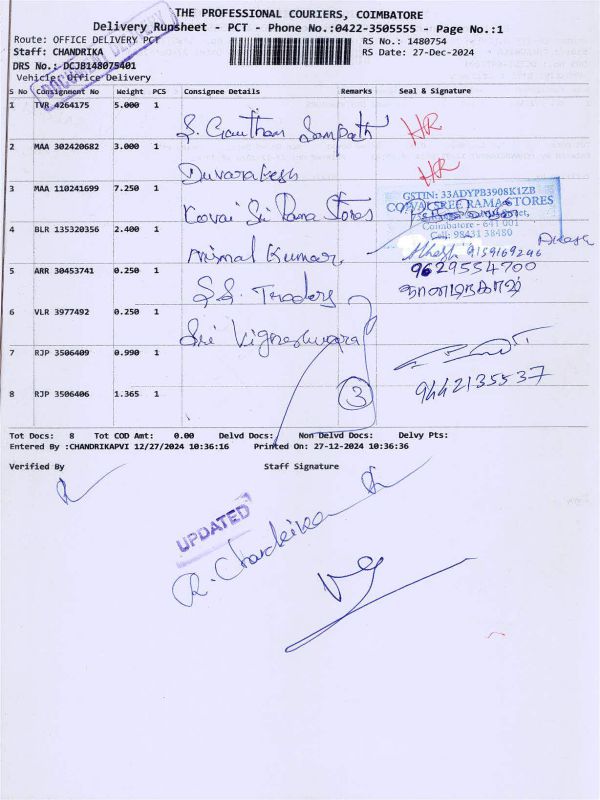 THE PROFESSIONAL COURIERS, COIMBATORE
Delivery Runsheet - PCT - Phone No.:0422-3505555 - Page No.:1
Route: OFFICE DELIVERY PCT RS No.: 1480754
Staff: CHANDRIKA RS Date: 27-Dec-2024
DRS No.: DCJB148075401
Vehicle: Office Delivery
DOCUMENT DELIVERY
S No Consignment No Weight PCS Consignee Details Remarks Seal & Signature
1 TVR 4264175 5.000 1 S. Gautham Sampath HR
2 MAA 302420682 3.000 1 Duvarakesh HR
3 MAA 110241699 7.250 1 Kovai Sri Rama Stores
GSTIN: 33ADYPB3908K1ZB
COVAI SREE RAMA STORES
Coimbatore - 641 001
Cell: 98431 38480
4 BLR 135320356 2.400 1 Nirmal Kumar Akash 9159169246 Akash
5 ARR 30453741 0.250 1 S.S. Traders 9629554700
6 VLR 3977492 0.250 1 Sri Vigneshwara
7 RJP 3506409 0.990 1
8 RJP 3506406 1.365 1 3 9442135537
Tot Docs: 8 Tot COD Amt: 0.00 Delvd Docs: Non Delvd Docs: Delvy Pts:
Entered By :CHANDRIKAPVI 12/27/2024 10:36:16 Printed On: 27-12-2024 10:36:36
Verified By Staff Signature
UPDATED
R. Chandrika